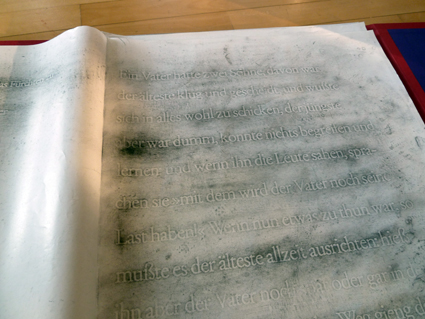 Ein Vater hatte zwei Söhne, davon war
der älteste klug und gescheit, und wußte
sich in alles wohl zu schicken, der jüngste
aber war dumm, konnte nichts begreifen und
lernen: und wenn ihn die Leute sahen, spra-
chen sie »mit dem wird der Vater noch
Last haben!« Wenn nun etwas zu thun war, so
mußte es der älteste allzeit ausrichten: hieß
ihn aber der Vater noch oder gar in
Weg gieng